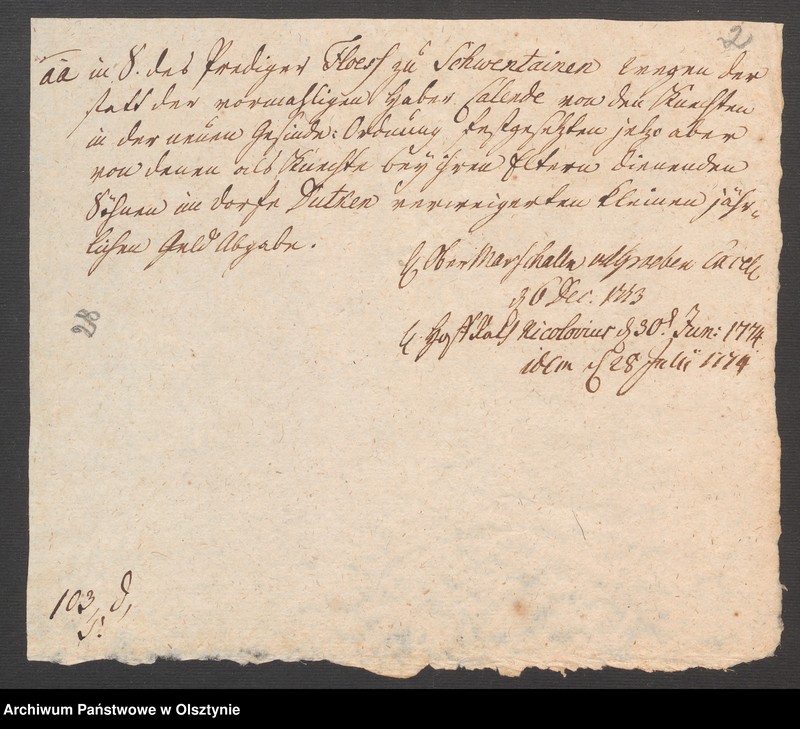 2
aa in S. des Prediger Floess zu Schwentainen wegen der
statt der vormahligen Haber Calende von den Knechten
in der neuen Gesinde-Ordnung festgesetzten jetzo aber
von denen als Knechte bey ihren Eltern dienenden
Söhnen im Dorfe Duthen verweigerten kleinen jähr-
lichen Geld Abgabe.
Ober Marschalln Groeben
Dec. 1773
28
Hoff Rath Nicolovius d 30t Jun: 1774
idem d 28 Julii 1774
103, d,
Archiwum Państwowe w Olsztynie